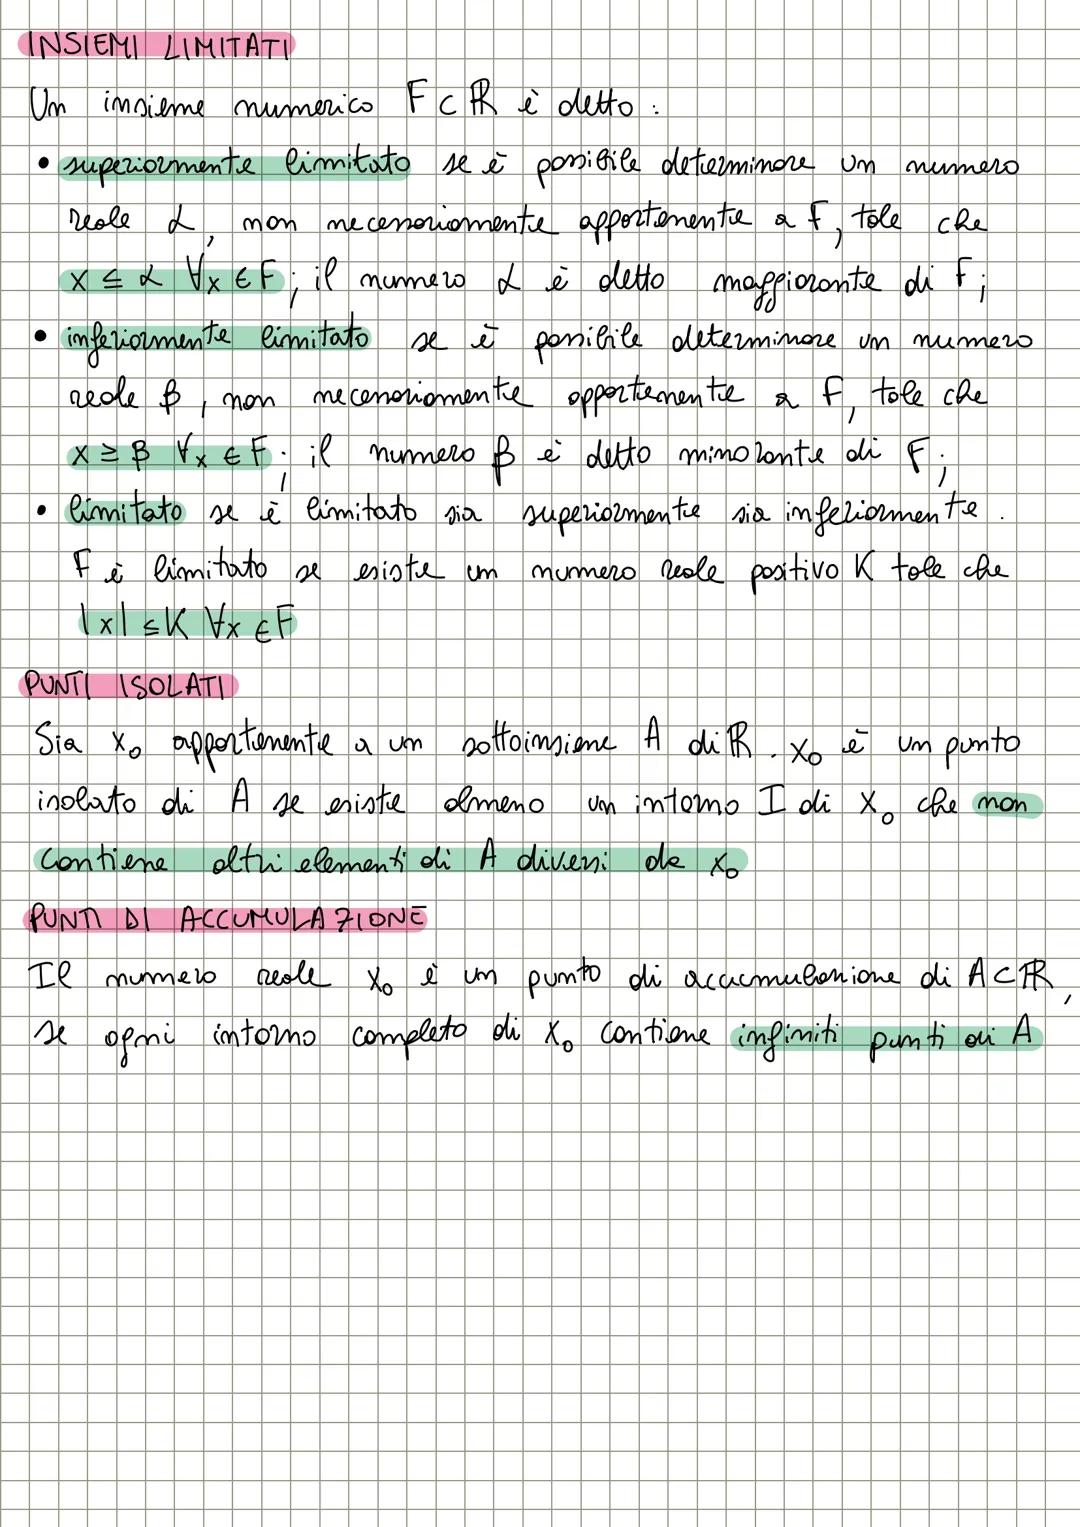 INSIEMI LIMITATI
Un insieme numerico F ⊂ ℝ è detto :
• superiormente limitato se è possibile determinare un numero
reale α, non necessariamente appartenente a F, tale che
x ≤ α ∀x ∈ F; il numero α è detto maggiorante di F;
• inferiormente limitato se è possibile determinare un numero
reale β, non necessariamente appartenente a F, tale che
x ≥ β ∀x ∈ F; il numero β è detto minorante di F;
• limitato se è limitato sia superiormente sia inferiormente.
F è limitato se esiste un numero reale positivo K tale che
|x| ≤ K ∀x ∈ F
PUNTI ISOLATI
Sia x₀ appartenente a un sottoinsieme A di ℝ. x₀ è un punto
isolato di A se esiste almeno un intorno I di x₀ che non
contiene altri elementi di A diversi da x₀
PUNTI DI ACCUMULAZIONE
Il numero reale x₀ è un punto di accumulazione di A ⊂ ℝ,
se ogni intorno completo di x₀ contiene infiniti punti di A